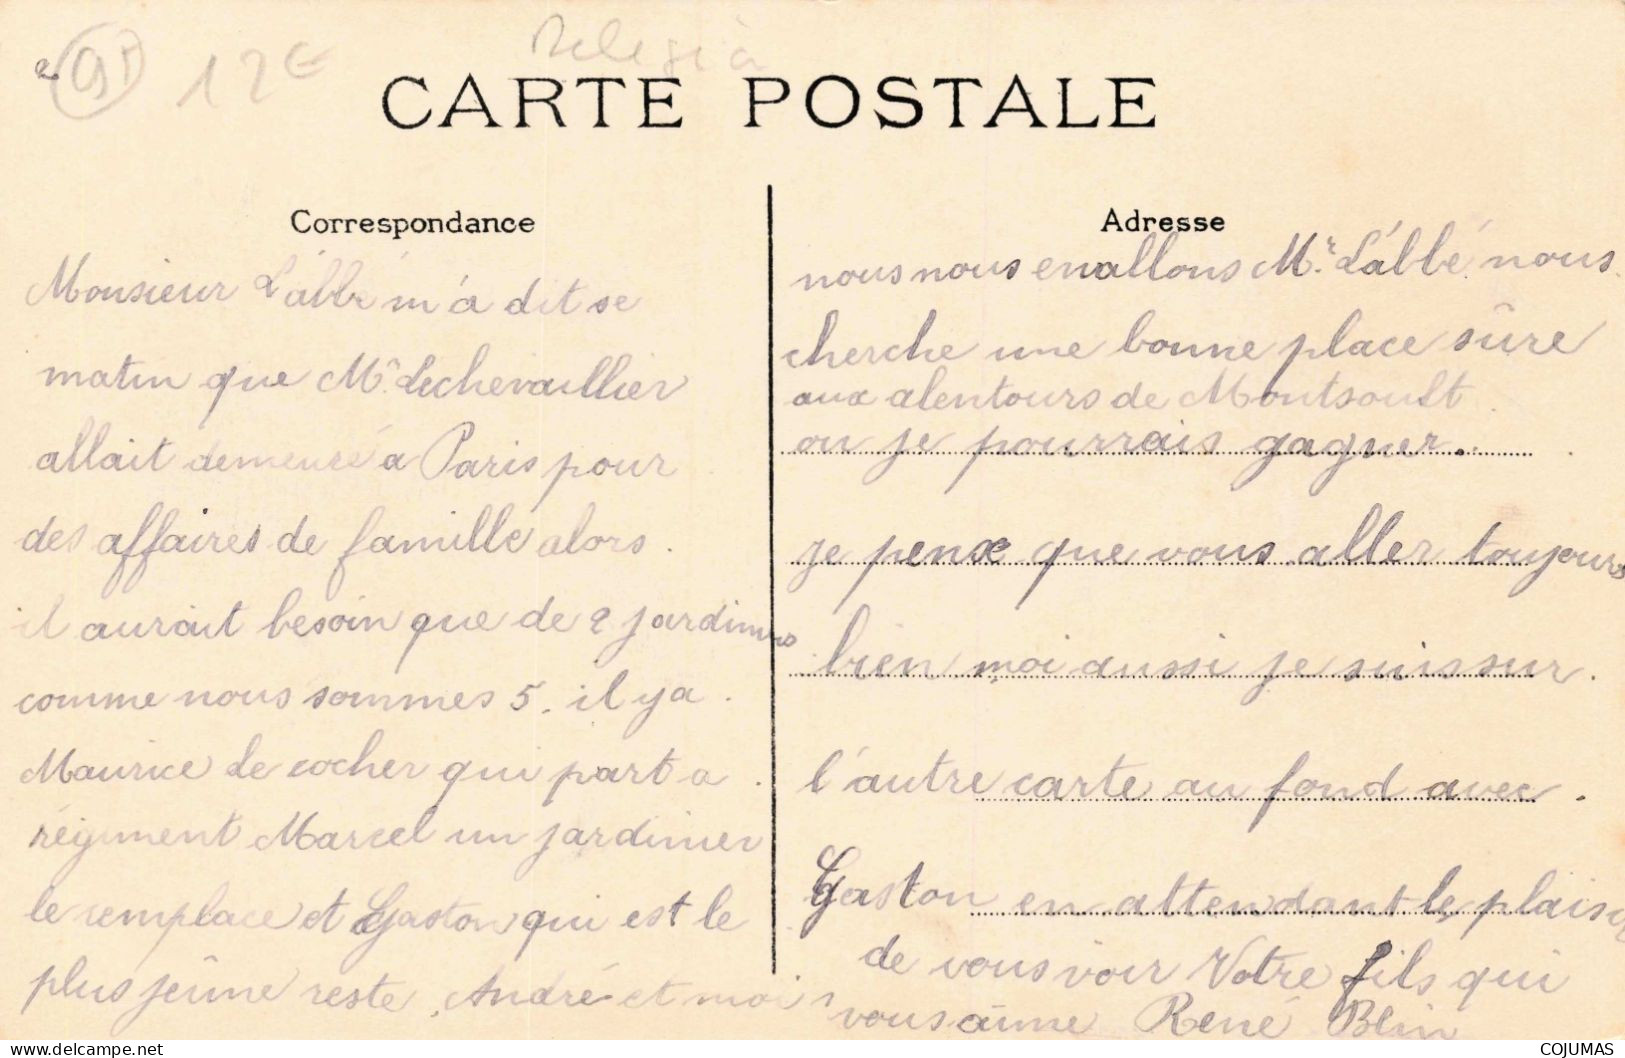 95 12€
CARTE POSTALE
Correspondance
Monsieur L'abbé m'a dit se
matin que Mr. Lechevaillier
allait demeuré a Paris pour
des affaires de famille alors.
il aurait besoin que de 2 jardiniers
comme nous sommes 5. il y a.
Maurice le cocher qui part a.
régiment Marcel un jardinier
le remplace et Gaston qui est le
plus jeûne reste, André et moi
Adresse
nous nous en allons Mr. L'abbé nous
cherche une bonne place sûre
aux alentours de Montsoult
ou je pourrais gagner.
je pense que vous aller toujours
bien moi aussi je suis sur.
l'autre carte au fond avec.
Gaston en attendant le plaisir
de vous voir Votre fils qui
vous aime René Blin
COJUMAS